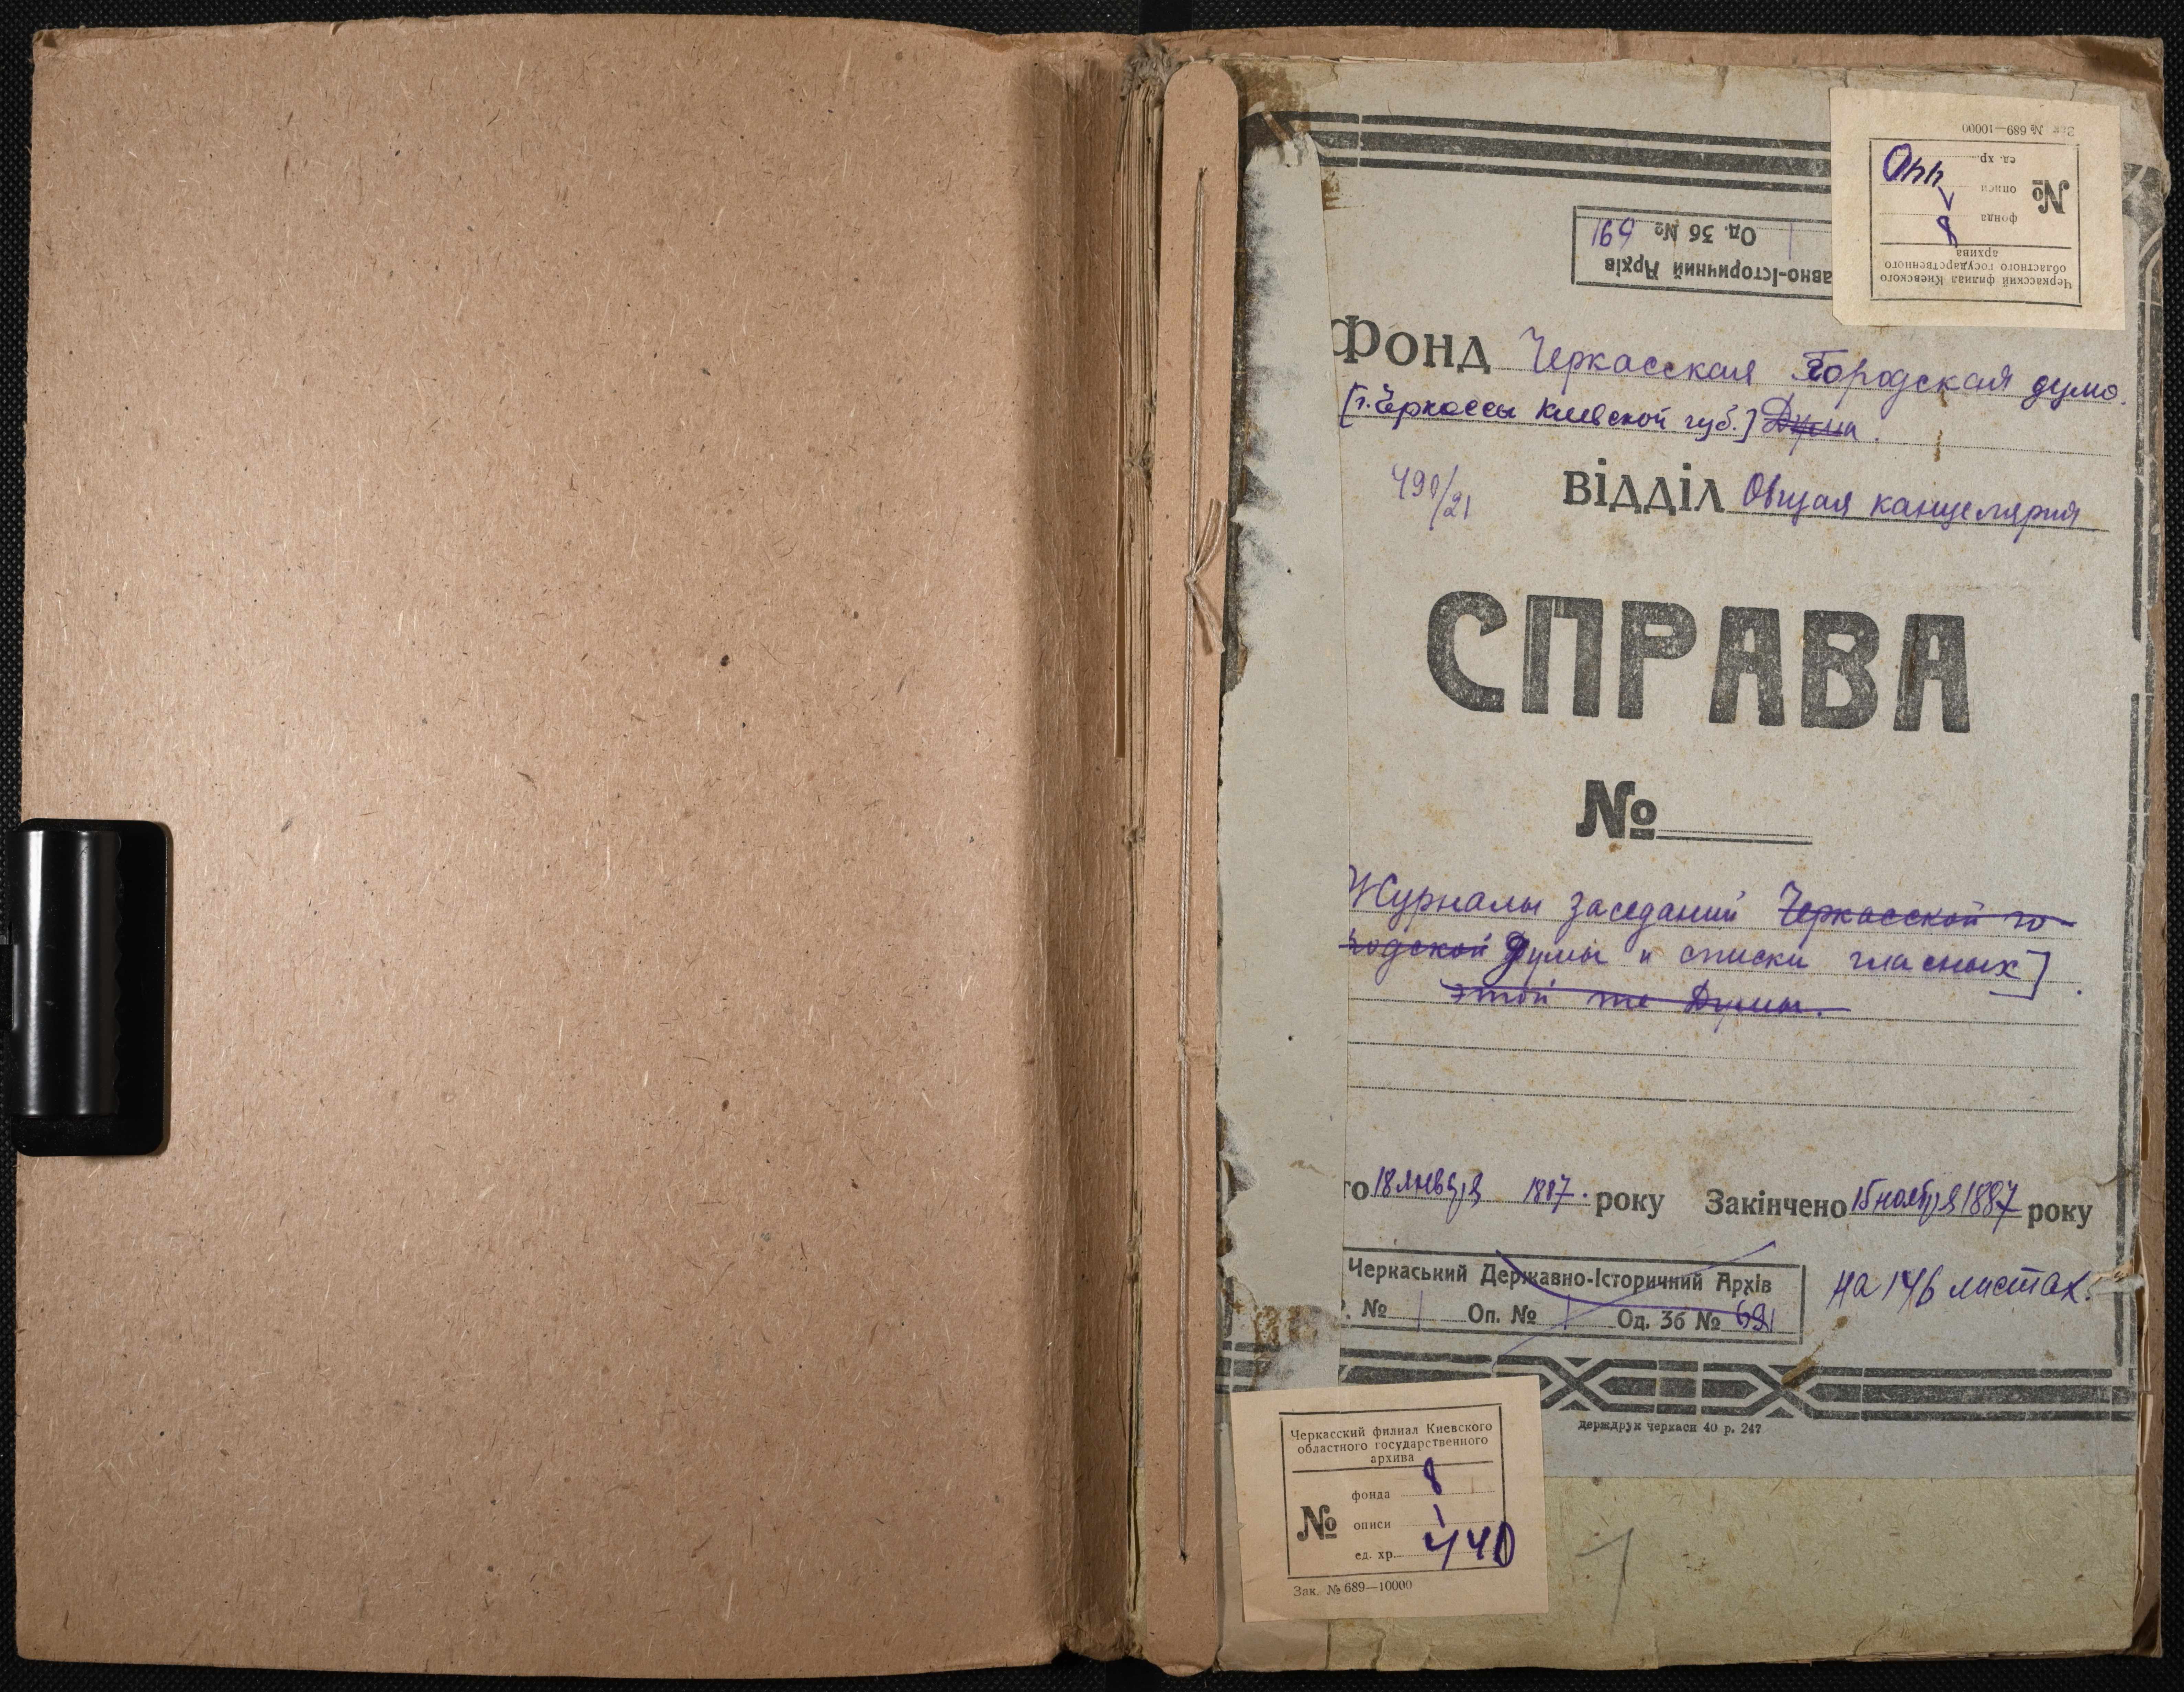 Зак № 689—10000
Черкасский филиал Киевского
областного государственного
архива
№
фонда 8
описи 1
ед. хр. 440
авно-Історичний Архів
Од. Зб № 691
Фонд Черкасская Городская дума.
[г. Черкассы Киевской губ.] Дума.
490/21
Відділ Общая канцелярия
СПРАВА
№
Журналы заседаний Черкасской го-
родской Думы и списки гласных]
этой же Думы.
го 18 января 1887. року Закінчено 15 ноября 1887 року
Черкаський Державно-Історичний Архів
. № 1 Оп. № 1 Од. Зб № 691
на 146 листах.
держдрук черкаси 40 р. 247
Черкасский филиал Киевского
областного государственного
архива
№
фонда 8
описи 1
ед. хр. 440
Зак. № 689—10000
1